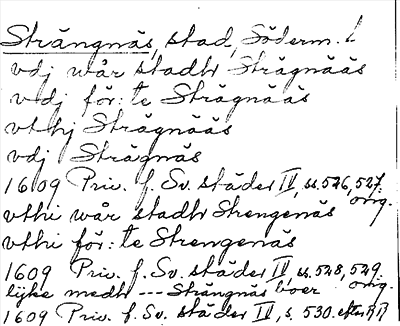 Strängnäs, stad, Söderm. l
vdj wår stadh Strägnääs
vdj för:te Strägnääs
vthj Strägnääs
vdj Strägnäs
1609 Priv. f. Sv. städer II, ss. 526, 527. orig.
vthi wår stadh Strengenäs
vthi för:te Strengenäs
1609 Priv. f. Sv. städer II, ss. 528, 529 orig.
lijke medh --- Strängnäs boer
1609 Priv. f. Sv. städer II, s. 530. efter